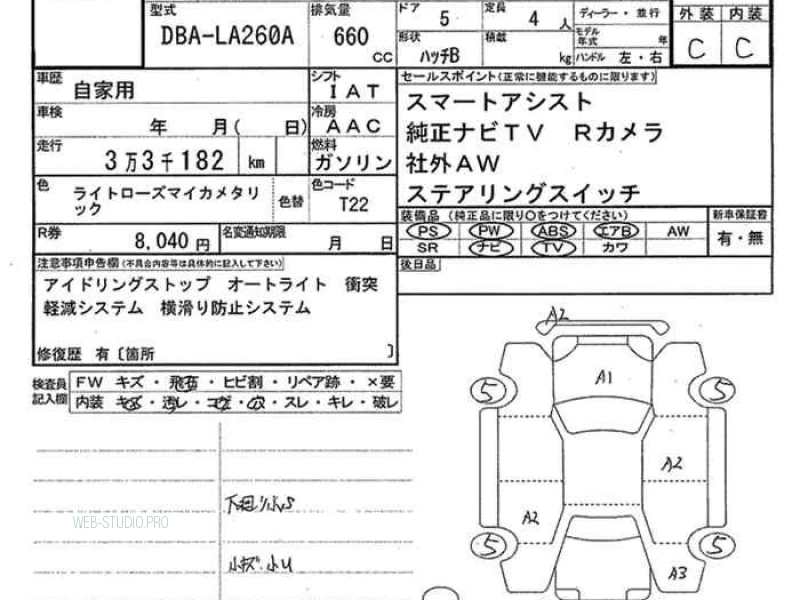 型式 DBA-LA260A
排気量 660 CC
ドア 5 定員 4 人
形状 ハッチB 積載 kg
ディーラー・並行
モデル年式 年
ハンドル 左・右
外装 内装
C C
車歴 自家用
シフト IAT
車検 年 月( 日)
冷房 AAC
走行 3万3千182 km
燃料 ガソリン
色 ライトローズマイカメタリック 色替
色コード T22
R券 8,040 円
名変通知期限 月 日
セールスポイント(正常に機能するものに限ります)
スマートアシスト
純正ナビTV Rカメラ
社外AW
ステアリングスイッチ
装備品 (純正品に限り○をつけてください)
新車保証書
PS PW ABS エアB AW
有・無
SR ナビ TV カワ
後日品
注意事項申告欄(不具合内容等は具体的に記入して下さい)
アイドリングストップ オートライト 衝突
軽減システム 横滑り防止システム
修復歴 有〔箇所 〕
検査員記入欄
FW キズ・飛石・ヒビ割・リペア跡・×要
内装 キズ・汚レ・コゲ・穴・スレ・キレ・破レ
A2
A1
5 5
A2
A2
5 5
A3
下廻り小S
WEB-STUDIO.PRO